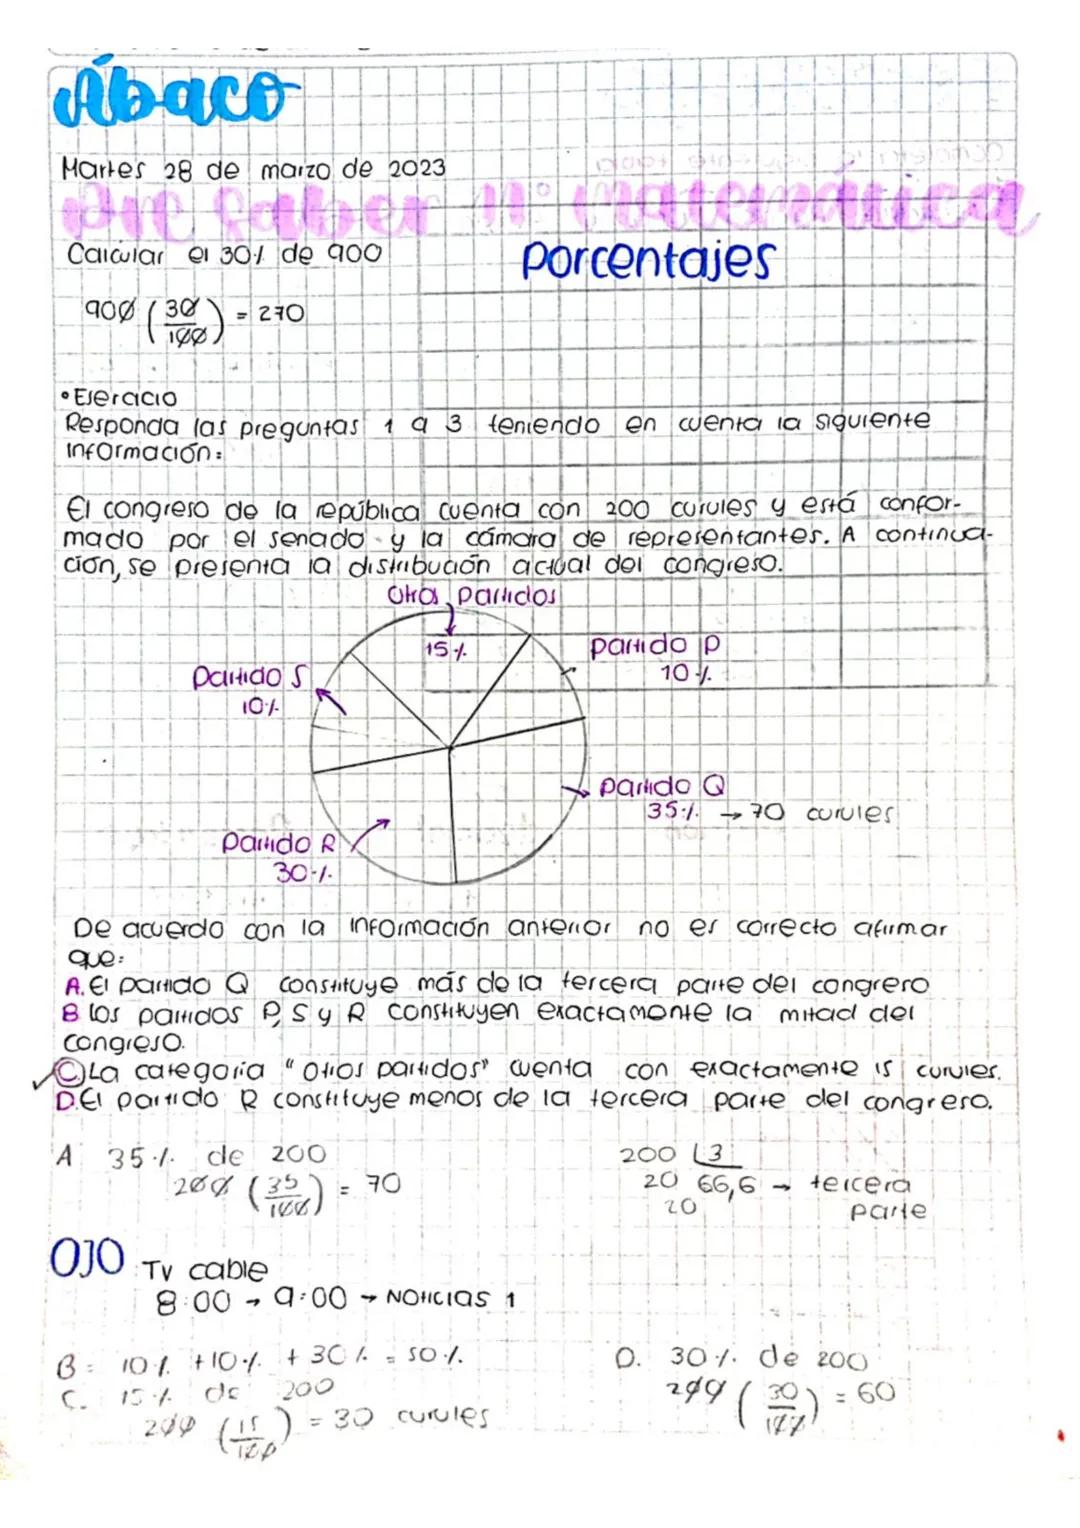 Ábaco
Martes 28 de marzo de 2023
Pre Saber 11° matemática
Calcular el 30% de 900
Porcentajes
900 (30/100) = 270
• Ejercicio
Responda las preguntas 1 a 3 teniendo en cuenta la siguiente
información:
El congreso de la república cuenta con 200 curules y está confor-
mado por el senado y la cámara de representantes. A continua-
ción, se presenta la distribución actual del congreso.
Otros partidos
15%
Partido P
10%
Partido S
10%
Partido Q
35% → 70 curules
Partido R
30%
De acuerdo con la información anterior no es correcto afirmar
que:
A. El partido Q constituye más de la tercera parte del congreso
B los partidos P, S y R constituyen exactamente la mitad del
congreso.
C) La categoria "otros partidos" cuenta con exactamente 15 curules.
D. El partido R constituye menos de la tercera parte del congreso.
A 35% de 200
200 (35/100) = 70
200 3
20 66,6 → tercera
20 parte
OJO TV cable
8:00 → 9:00 → Noticias 1
B = 10% + 10% + 30% = 50%
C. 15% de 200
200 (15/100) = 30 curules
D. 30% de 200
200 (30/100) = 60